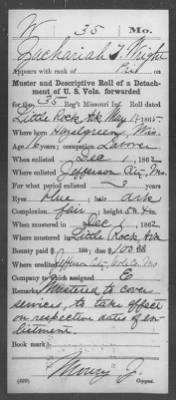 W 35 Mo.
Zachariah T. Wright
Appears with rank of Pvt on
Muster and Descriptive Roll of a Detach-
ment of U. S. Vols. forwarded
for the 35 Reg't Missouri Inf. Roll dated
Little Rock Ark May 17 1865.
Where born Hazelgreen, Mo.
Age 16 y'rs; occupation Laborer
When enlisted Dec 1, 1862
Where enlisted Jefferson City, Mo
For what period enlisted 3 years
Eyes blue; hair dark
Complexion fair; height 5 ft. 4 in.
When mustered in Dec 1, 1862
Where mustered in Little Rock Ark
Bounty paid $ 100; due $ 100
Where credited Jefferson City, Cole Co. Mo
Company to which assigned E
Remarks: Mustered to cover
services, to take effect
on respective dates of en-
listment.
Book mark:
Mowry J.
(339) Copyist.